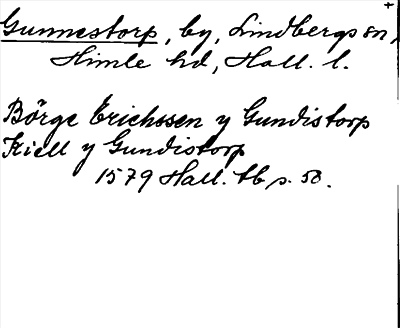 Gunnestorp, by, Lindbergs sn,
Himle hd, Hall. l.
Börge Erichssen y Gundistorp
Kiell y Gundistorp
1579 Hall. tb s. 58.